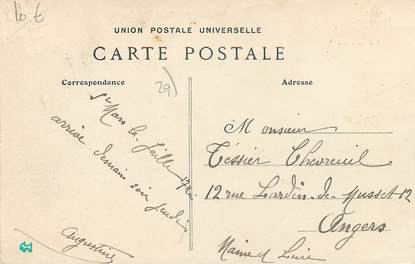 16 €
UNION POSTALE UNIVERSELLE
CARTE POSTALE
Correspondance
Adresse
29
St Mars la Jaille
arrive demain soir jeudi
Augustine
Monsieur
Tessier Chevreuil
12 rue Lardin-de-Musset 12
Angers
Maine et Loire